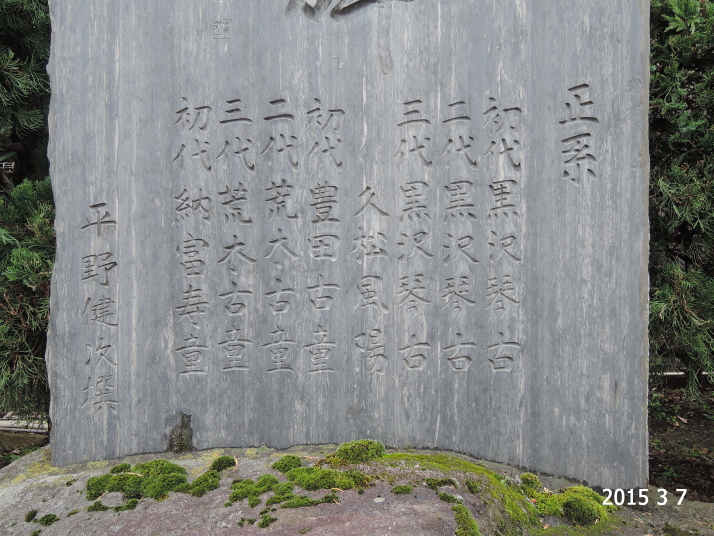 正系
初代黒沢琴古
二代黒沢琴古
三代黒沢琴古
久松風陽
初代豊田古童
二代荒木古童
三代荒木古童
初代納富寿童
平野健次撰
2015 3 7